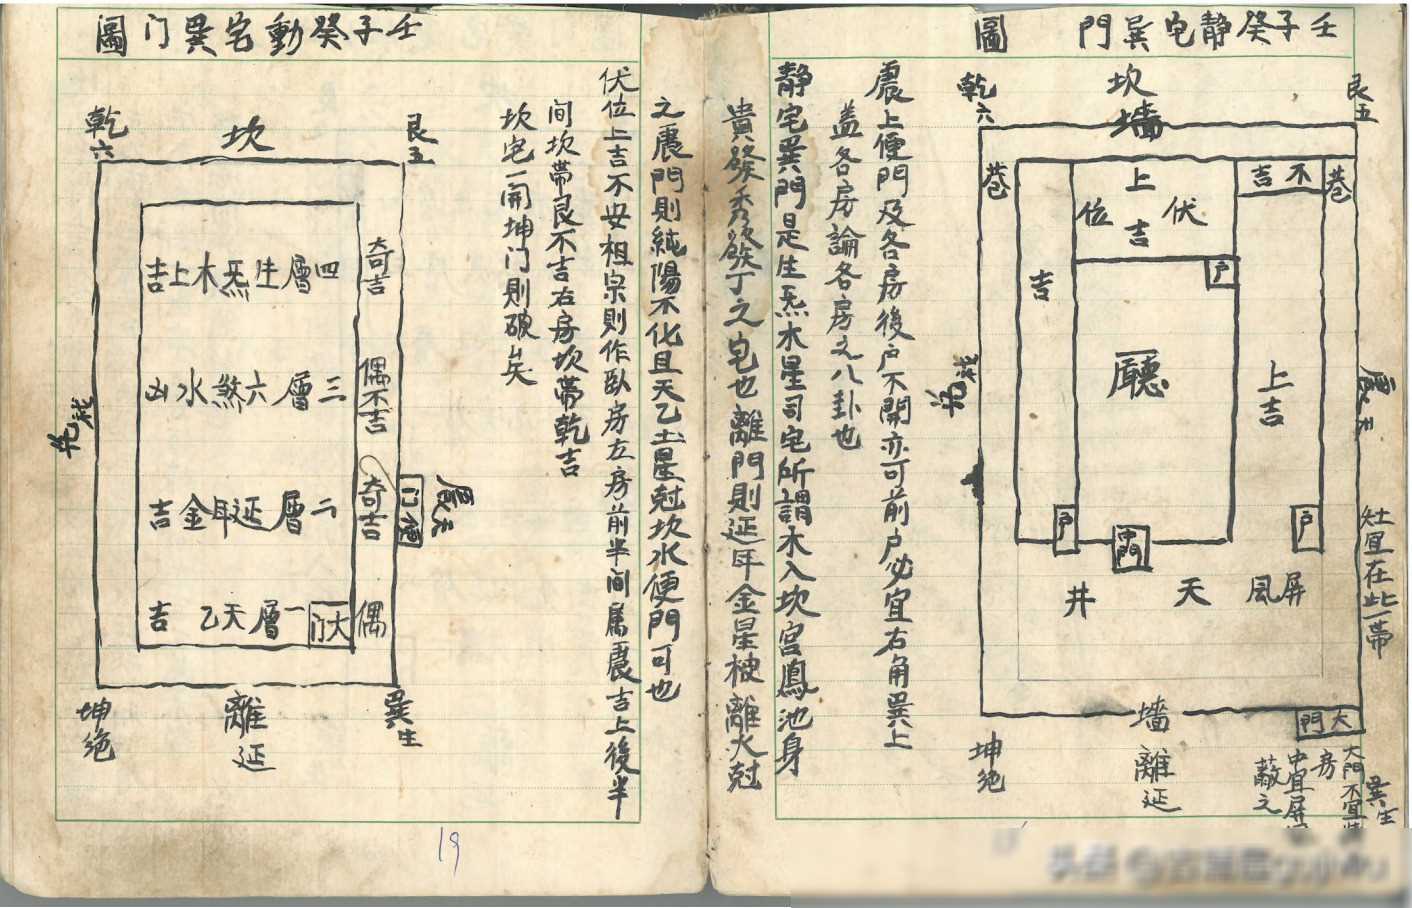 壬子癸靜宅巽門圖
艮五
坎
乾六
墻
巷
不吉
上吉
伏位
巷
戶
吉
廳
上吉
震天
兌禍
戶
中門
戶
灶宜在此一帶
屏風
天井
墻
大門
巽生
離延
坤絕
大門不宜
房
中宜屏
蔽之
震上便門及各房後戶不開亦可前戶必宜右角巽上
蓋各房論各房之八卦也
靜宅巽門是生炁木星司宅所謂木入坎宮鳳池身
貴發秀發發丁之宅也離門則延年金星被離火尅
之震門則純陽不化且天乙土星尅坎水便門可也
伏位上吉不安祖宗則作臥房左房前半間属震吉上後半
間坎帶艮不吉右房坎帶乾吉
坎宅一開坤门則破矣
壬子癸動宅巽门圖
艮五
坎
乾六
奇吉
四層生炁木上吉
偶不吉
三層六煞水凶
兌禍
奇吉
便门
震天
二層延年金吉
偶
大门
一層天乙吉
巽生
離延
坤絕
19